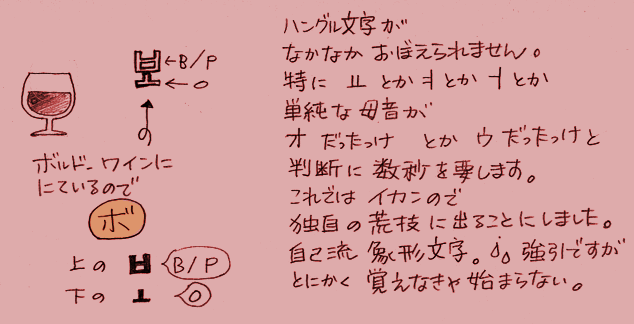 보 ←B/P
← O
の
ボルドーワインに
にているので
ボ
上の ㅂ B/P
下の ㅗ O
ハングル文字が
なかなか おぼえられません。
特に ㅛ とか ㅕ とか ㅓ とか
単純な 母音が
オ だったっけ とか ウ だったっけと
判断に 数秒を要します。
これでは イカンので
独自の荒技に出ることにしました。
自己流 象形文字。強引ですが
とにかく 覚えなきゃ始まらない。